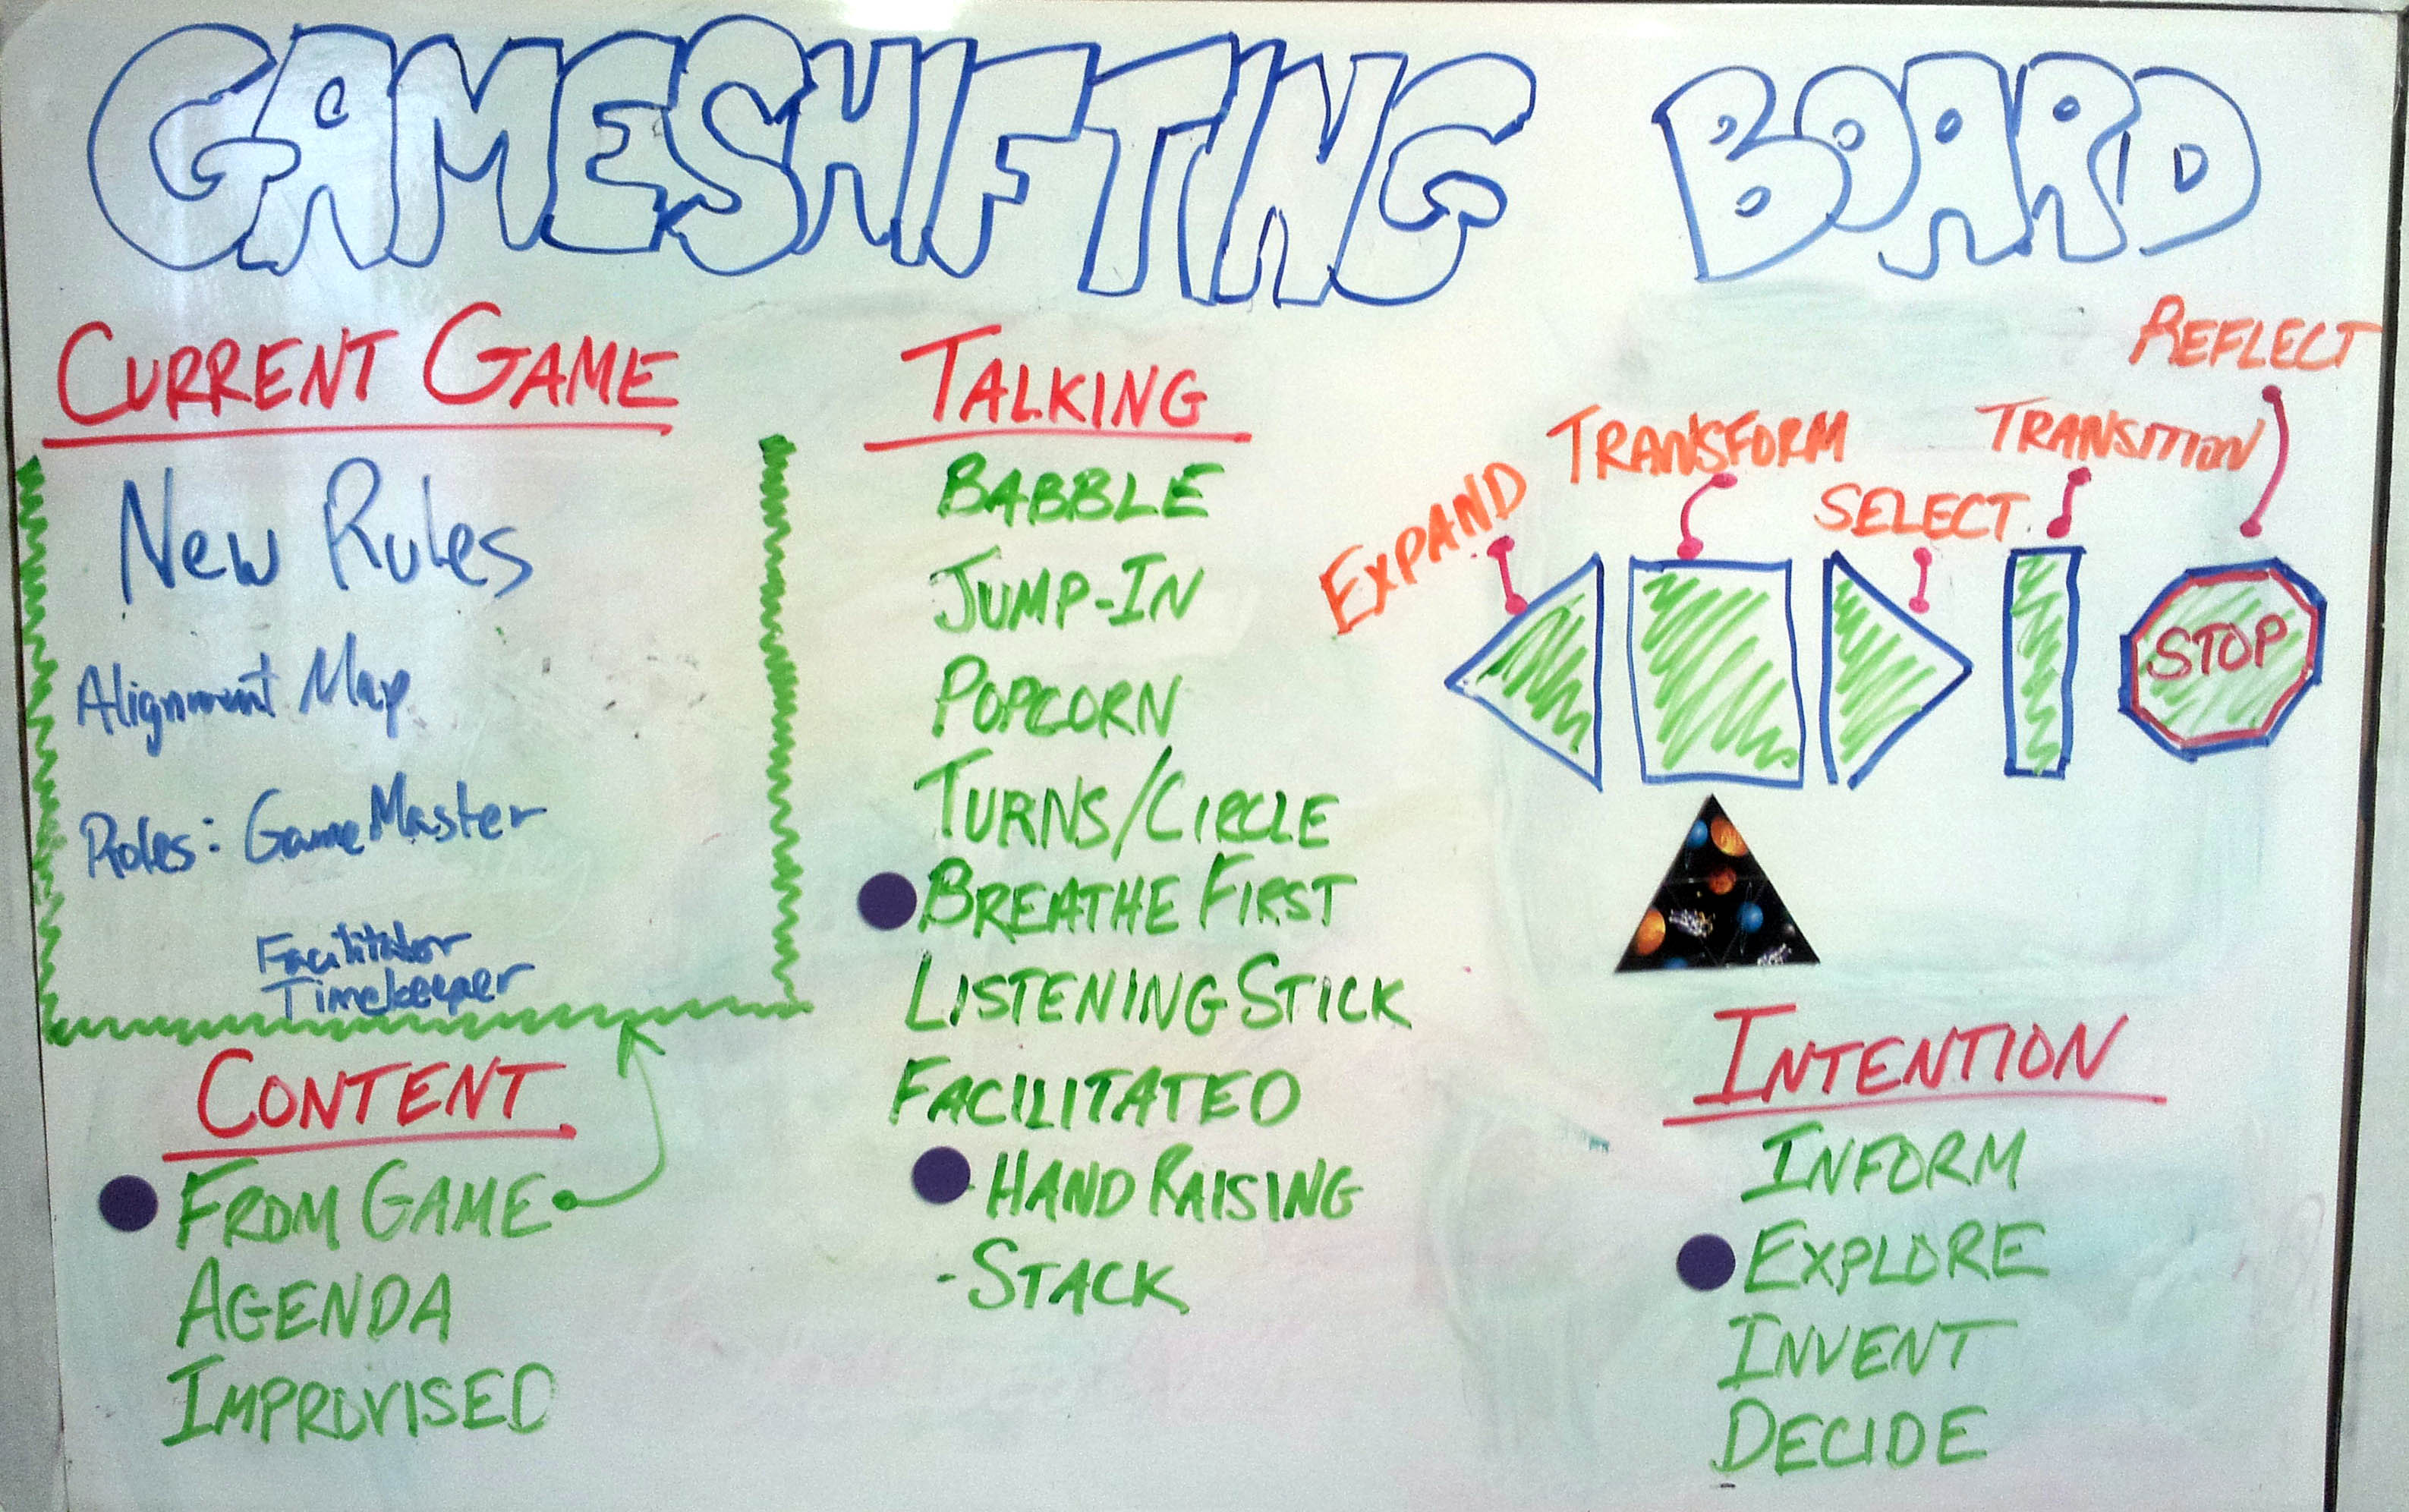 GAMESHIFTING BOARD
CURRENT GAME
New Rules
Alignment Map
Roles: GameMaster
Facilitator
Timekeeper
CONTENT
FROM GAME
AGENDA
IMPROVISED
TALKING
BABBLE
JUMP-IN
POPCORN
TURNS/CIRCLE
BREATHE FIRST
LISTENING STICK
FACILITATED
- HAND RAISING
- STACK
REFLECT
TRANSFORM
TRANSITION
EXPAND
SELECT
STOP
INTENTION
INFORM
EXPLORE
INVENT
DECIDE